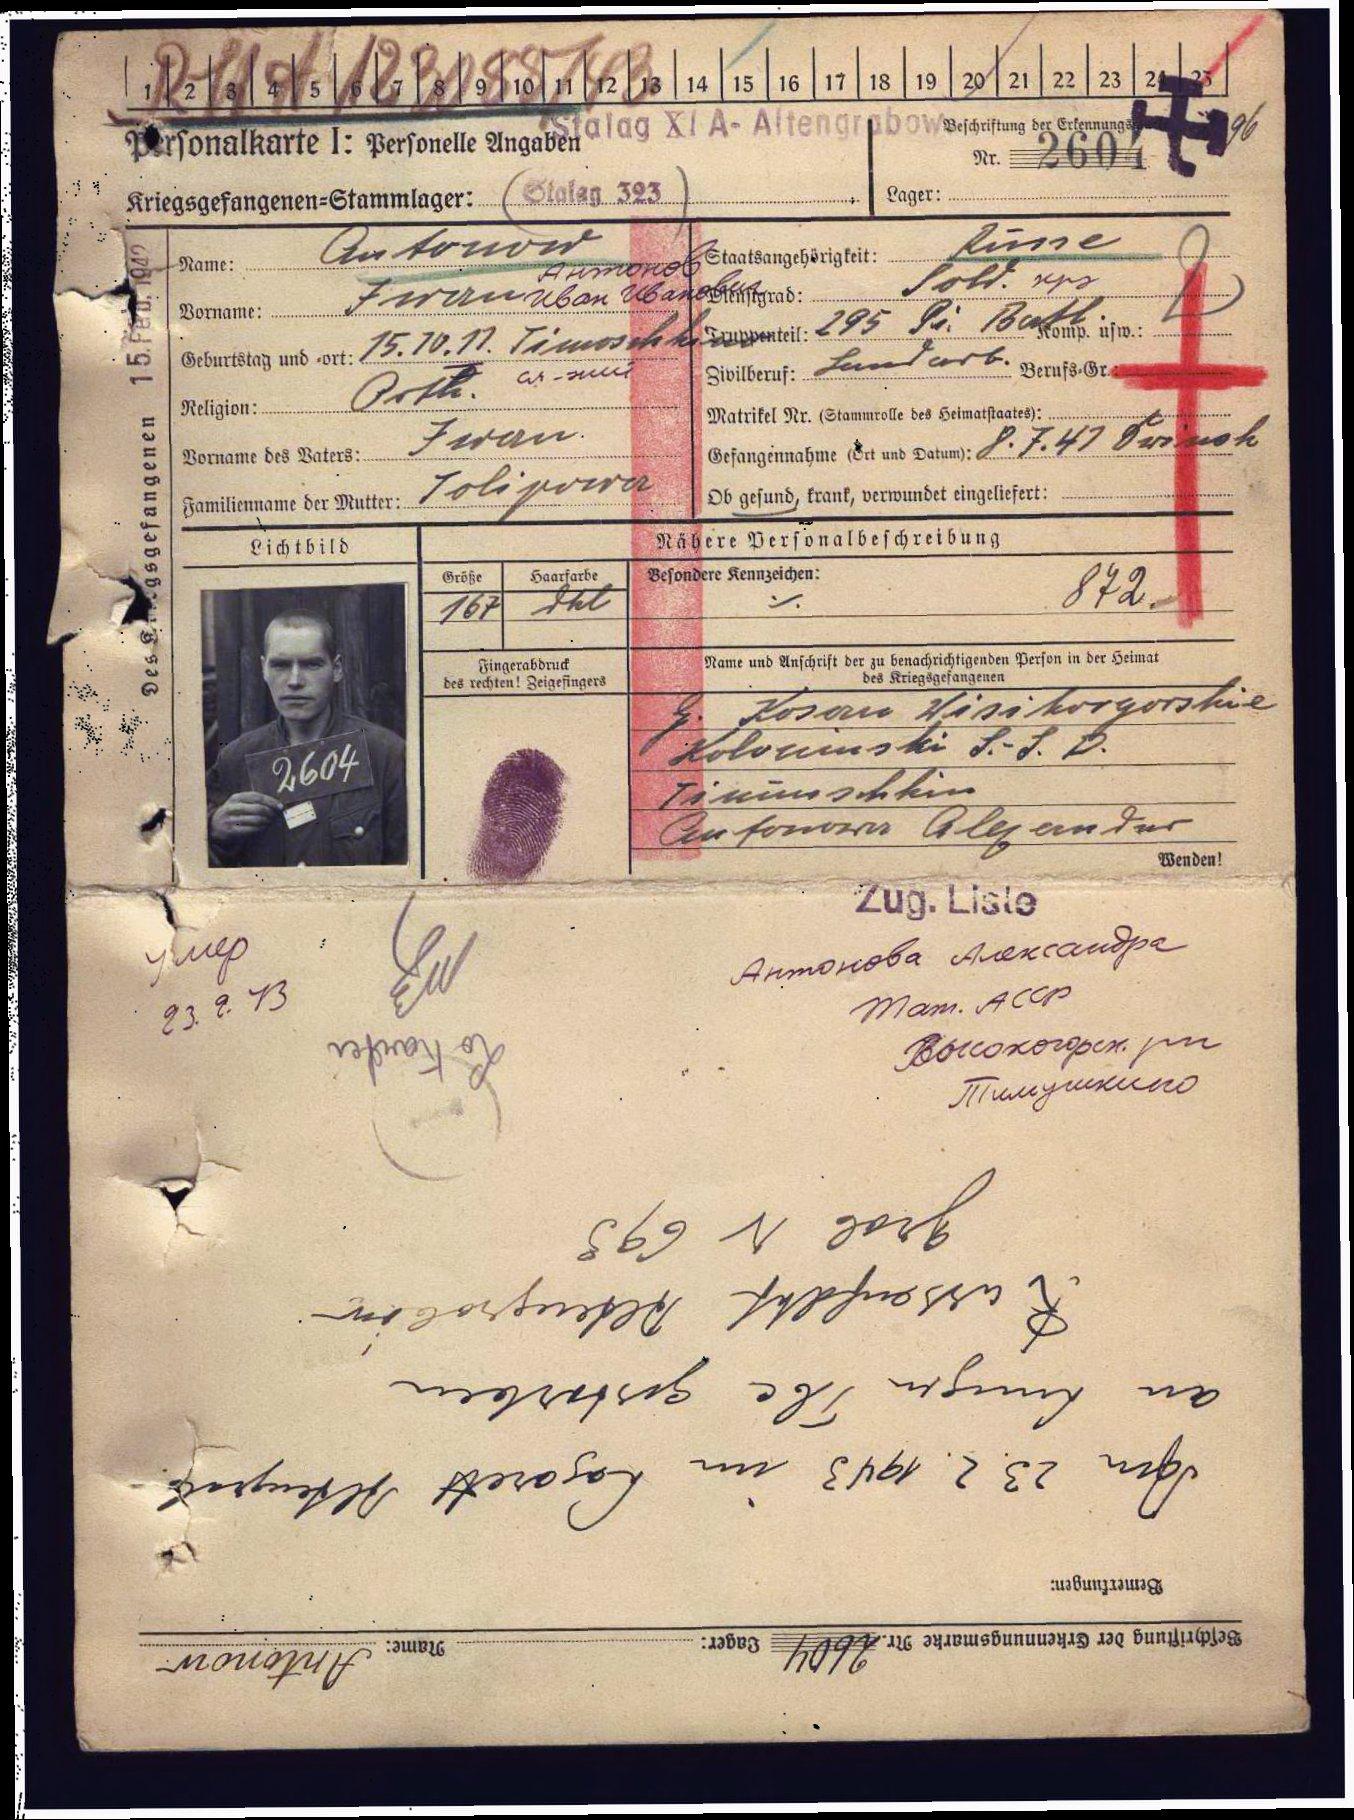 1 2 3 4 5 6 7 8 9 10 11 12 13 14 15 16 17 18 19 20 21 22 23 24 25
Stalag XI A- Altengrabow
Personalkarte I: Personelle Angaben
Beschriftung der Erkennungs
Nr. 2604
96
Kriegsgefangenen-Stammlager: Stalag 323
Lager:
Des Kriegsgefangenen 15. Feb. 1942
Name: Antonow
Антонов
Vorname: Iwan Иван Иванович
Geburtstag und -ort: 15.10.17. Timoschkino
Religion: Orth.
Vorname des Vaters: Iwan.
Familienname der Mutter: Tolipowa
Staatsangehörigkeit: Russe
Dienstgrad: Sold. кр
Truppenteil: 295 Pi. Batl. Komp. usw.:
Zivilberuf: Landarb. Berufs-Gr.:
Matrikel Nr. (Stammrolle des Heimatstaates):
Gefangennahme (Ort und Datum): 8.7.41
Ob gesund, krank, verwundet eingeliefert:
Lichtbild
2604
Nähere Personalbeschreibung
Größe
167
Haarfarbe
dkl
Besondere Kennzeichen:
872.
Fingerabdruck
des rechten! Zeigefingers
Name und Anschrift der zu benachrichtigenden Person in der Heimat
des Kriegsgefangenen
G. Kosan Wisikorgorskie
S.-S. D.
Timuschkin
Antonowa Alexandra
Wenden!
Zug. Liste
умер
23.2.43
Антонова Александра
Тат. АССР
Высокогорск. рн
Тимушкино
Beschriftung der Erkennungsmarke Nr. 2604 Lager: Name: Antonow
Bemerkungen:
Am 23.2.1943 im Lazarett Altengrab.
an Lungen Tbc gestorben
Russenfdhf. Altengrabow
Grab N 693